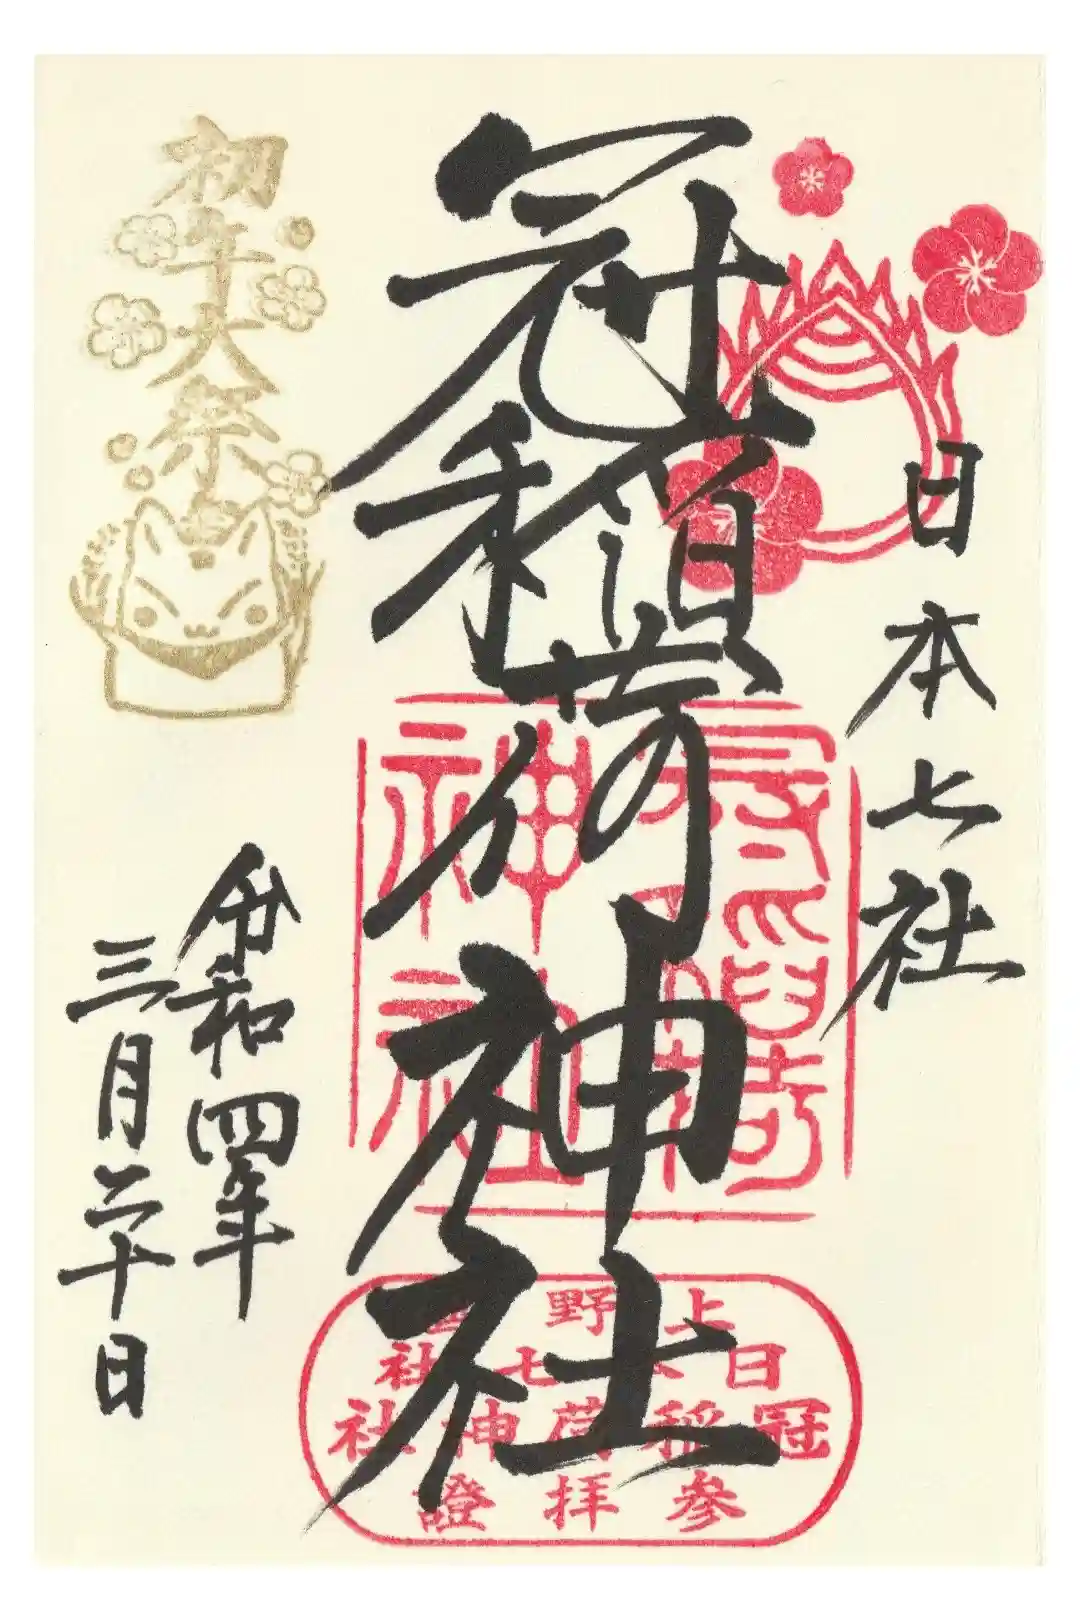 日本七社
冠稲荷神社
冠稲荷
神社
上野國
日本七社
冠稲荷神社
参拝證
初午大祭
令和四年
三月二十日